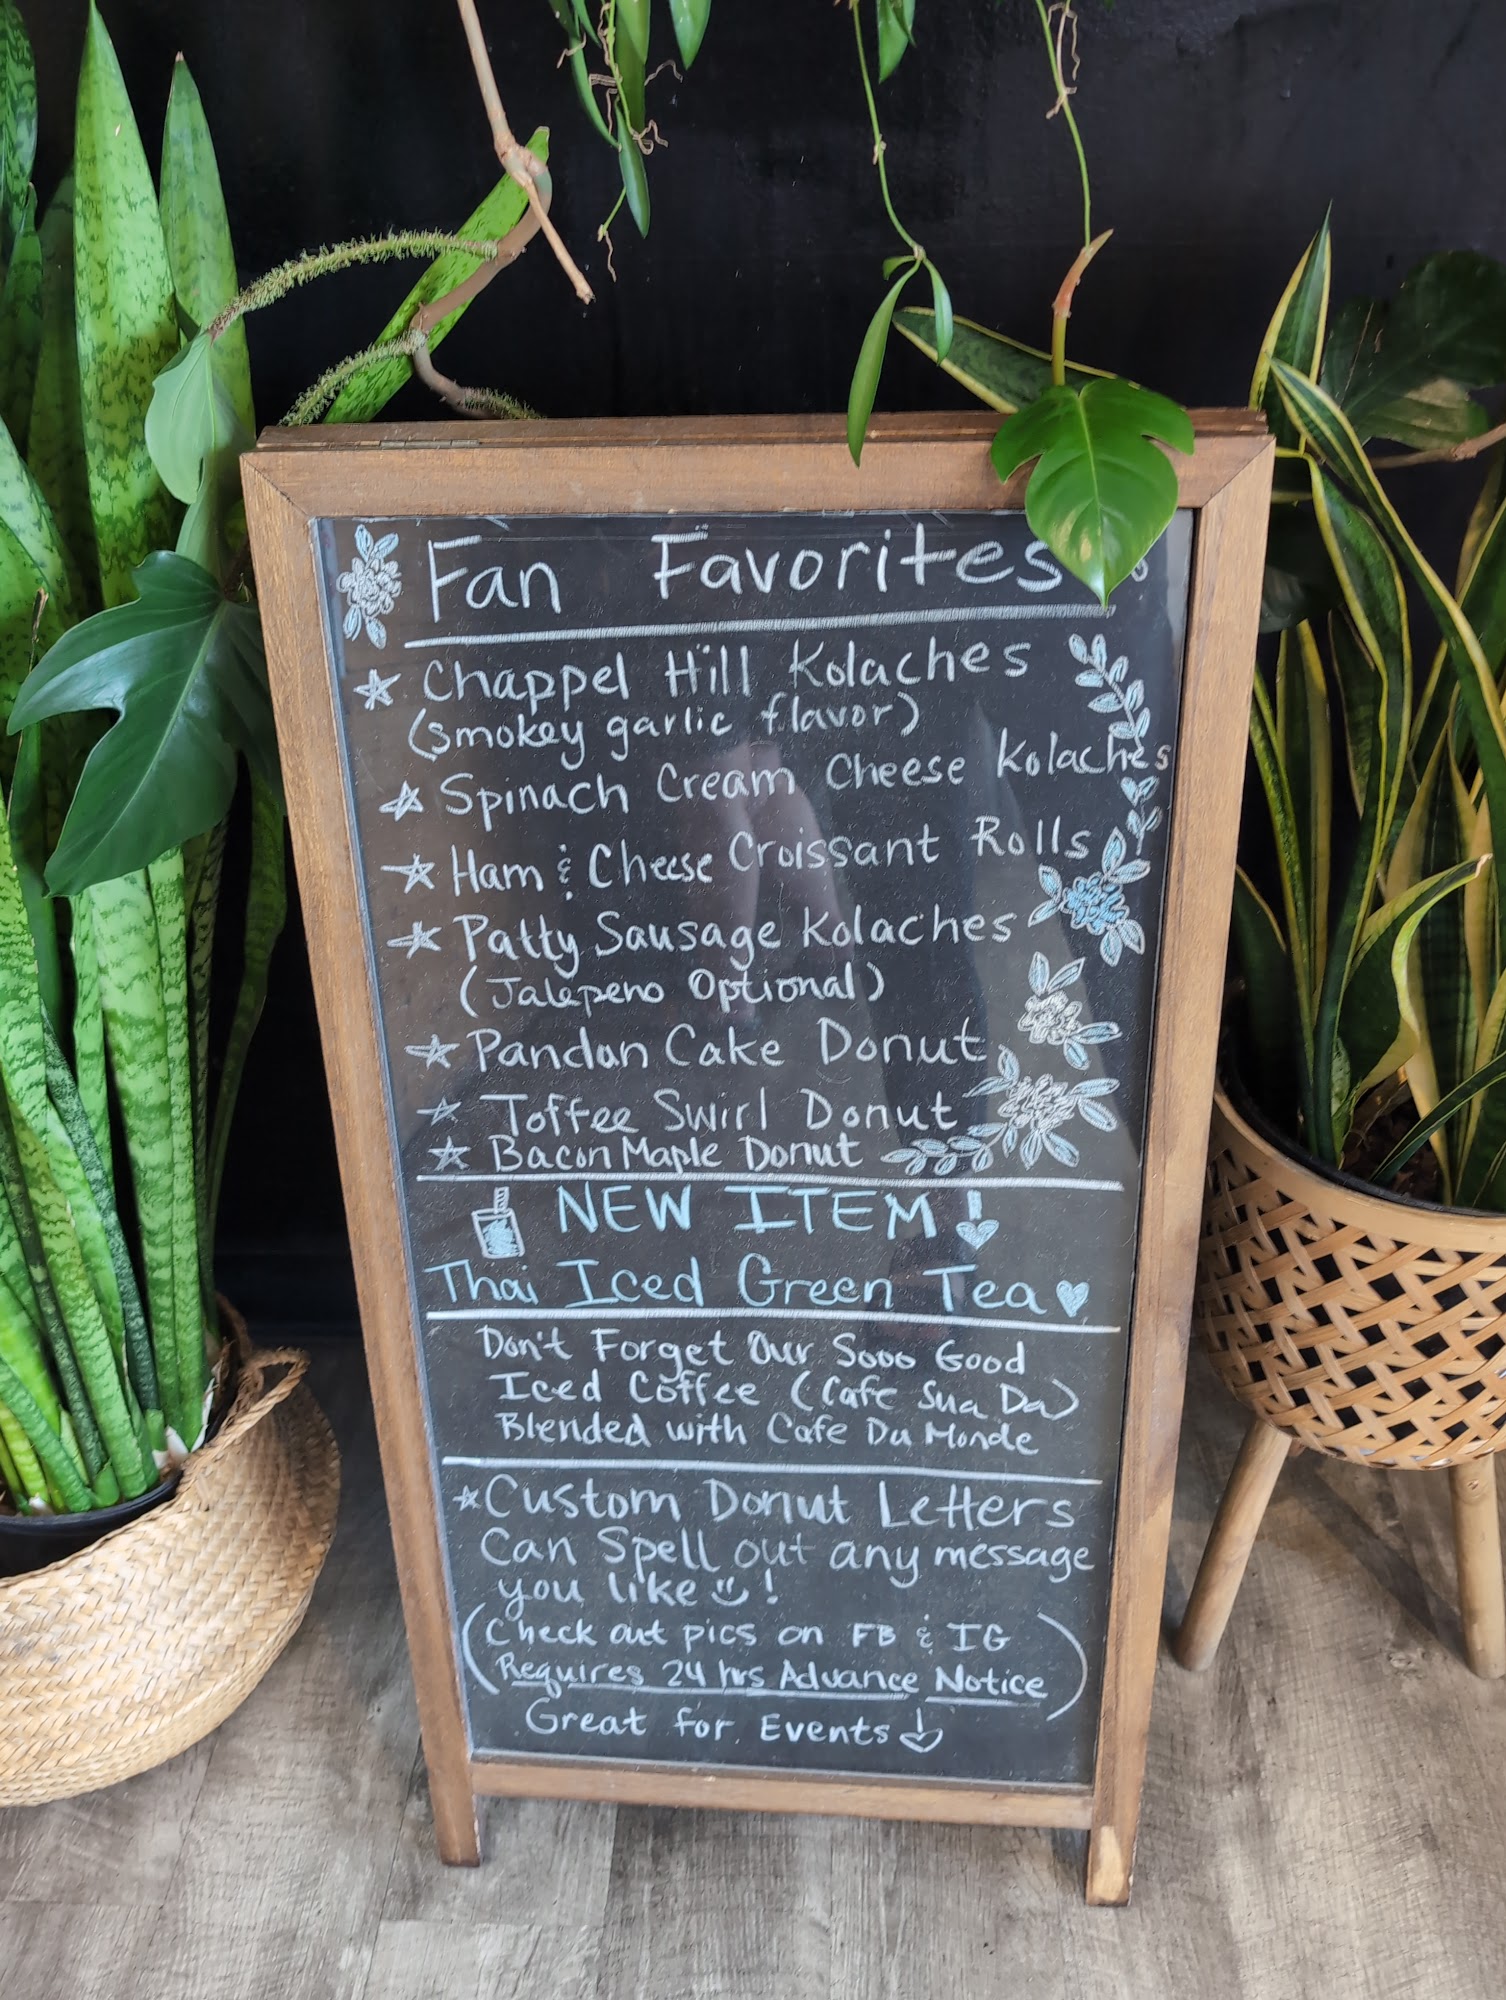 Fan Favorites
Chappel Hill Kolaches
(smokey garlic flavor)
Spinach Cream Cheese Kolaches
Ham & Cheese Croissant Rolls
Patty Sausage Kolaches
(Jalepeno Optional)
Pandan Cake Donut
Toffee Swirl Donut
Bacon Maple Donut
NEW ITEM!
Thai Iced Green Tea
Don't Forget Our Sooo Good
Iced Coffee (Cafe Sua Da)
Blended with Cafe Du Monde
Custom Donut Letters
Can Spell out any message
you like!
(Check out pics on FB & IG
Requires 24 hrs Advance Notice)
Great for Events!